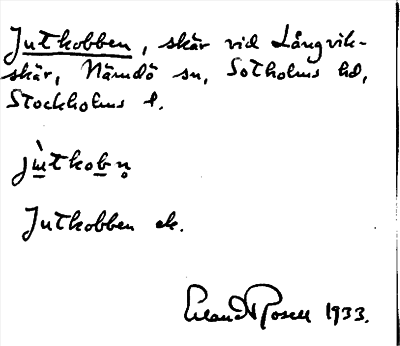 Jutkobben, skär vid Långvik-
skär, Nämdö sn, Sotholms hd,
Stockholms l.
jùtkobṇ
Jutkobben ek.
Erland Rosell 1933.